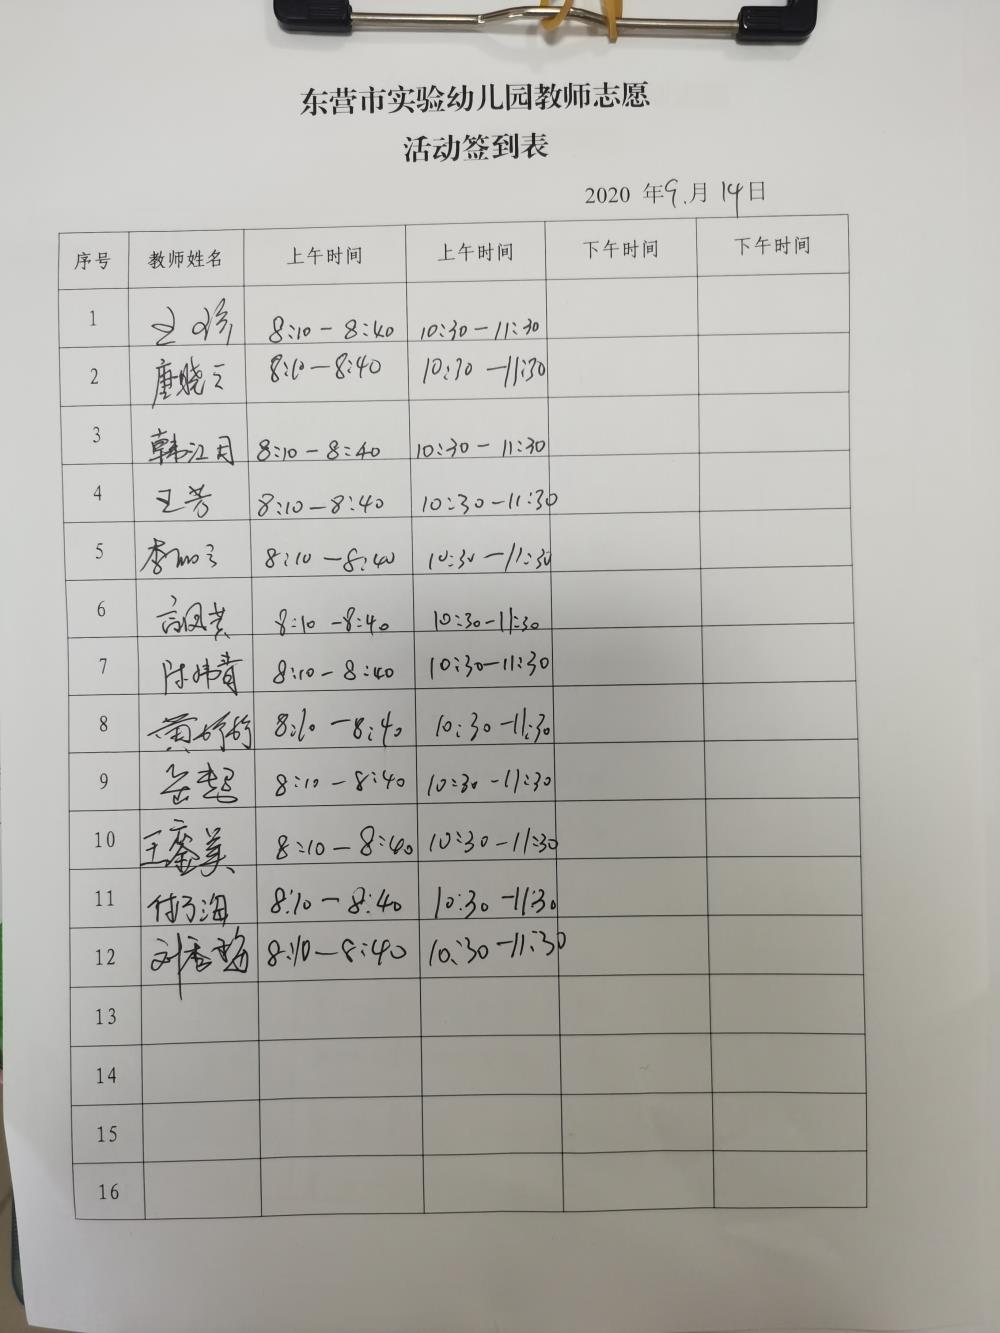 东营市实验幼儿园教师志愿
活动签到表
2020 年9.月14日
序号 教师姓名 上午时间 上午时间 下午时间 下午时间
1 8:10-8:40 10:30-11:30
2 唐晓云 8:10-8:40 10:30-11:30
3 韩江月 8:10-8:40 10:30-11:30
4 王芳 8:10-8:40 10:30-11:30
5 8:10-8:40 10:30-11:30
6 8:10-8:40 10:30-11:30
7 8:10-8:40 10:30-11:30
8 8:10-8:40 10:30-11:30
9 8:10-8:40 10:30-11:30
10 8:10-8:40 10:30-11:30
11 8:10-8:40 10:30-11:30
12 8:10-8:40 10:30-11:30
13
14
15
16